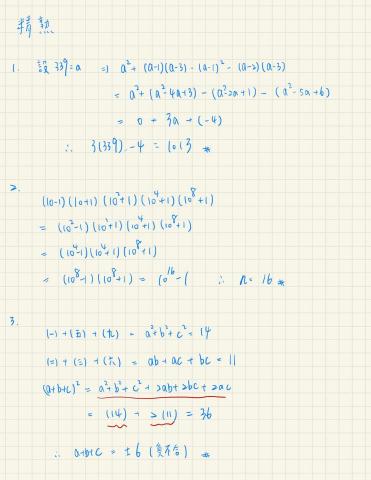 精熟
1. 設 339=a ⇒ a²+(a-1)(a-3)-(a-1)²-(a-2)(a-3)
= a²+(a²-4a+3)-(a²-2a+1)-(a²-5a+6)
= 0+3a+(-4)
∴ 3(339)-4=1013 *
2.
(10-1)(10+1)(10²+1)(10⁴+1)(10⁸+1)
= (10²-1)(10²+1)(10⁴+1)(10⁸+1)
= (10⁴-1)(10⁴+1)(10⁸+1)
= (10⁸-1)(10⁸+1) = 10¹⁶-1 ∴ n=16 *
3.
(一)+(五)+(九) = a²+b²+c²=14
(二)+(三)+(六) = ab+ac+bc=11
(a+b+c)² = a²+b²+c²+2ab+2bc+2ac
= (14)+2(11)=36
∴ a+b+c = ±6 (負不合) *